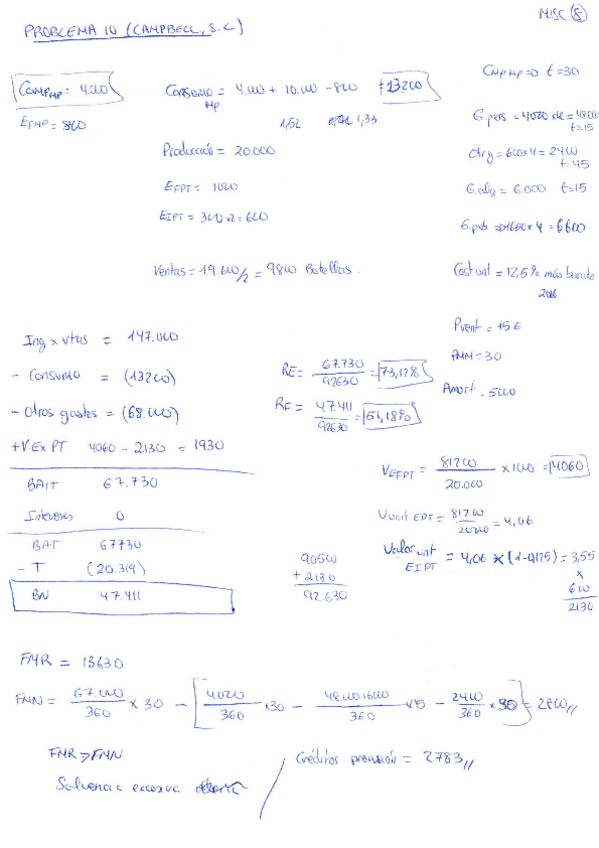 MISC 8
PROBLEMA 10 (CAMPBELL, S.L)
COMP MP = 4.000
EF MP = 800
Consumo MP = 4.000 + 10.000 - 800 = 13200
1,52 1,33
Producción = 20.000
EFPT = 1000
EIPT = 300 x 2 = 600
Ventas = 19.600/2 = 9800 Botellas.
t = 30
G. pers = 4020 = 48000
t = 15
Otr g = 600 x 4 = 2400
t = 45
G. alq = 6.000 t = 15
G. pub = 1650 x 4 = 6600
Cost unt = 12,5% más barato
2016
Pvent = 15€
PMM = 30
Amort. 5000
Ing x vtas = 147.000
- Consumo = (13200)
- Otros gastos = (68.000)
+V. Ex PT 4060 - 2130 = 1930
BAIT 67.730
Intereses 0
BAT 67730
- T (20.319)
BN 47.411
RE = 67.730 / 92630 = 73,12%
RF = 47.411 / 92630 = 51,18%
90500
+ 2130
92.630
V EFPT = 81200 / 20.000 x 1000 = 4060
V unit EPT = 81200 / 20000 = 4,06
Valor unt EIPT = 4,06 x (1-0,125) = 3,55
x
600
2130
FMR = 13630
FMN = 67.000 / 360 x 30 - [ 4020 / 360 x 30 - 48000+6000 / 360 x 15 - 2400 / 360 x 30 ] = 2800 //
FMR > FMN
Solvencia excesiva
Créditos provisión = 2783 //